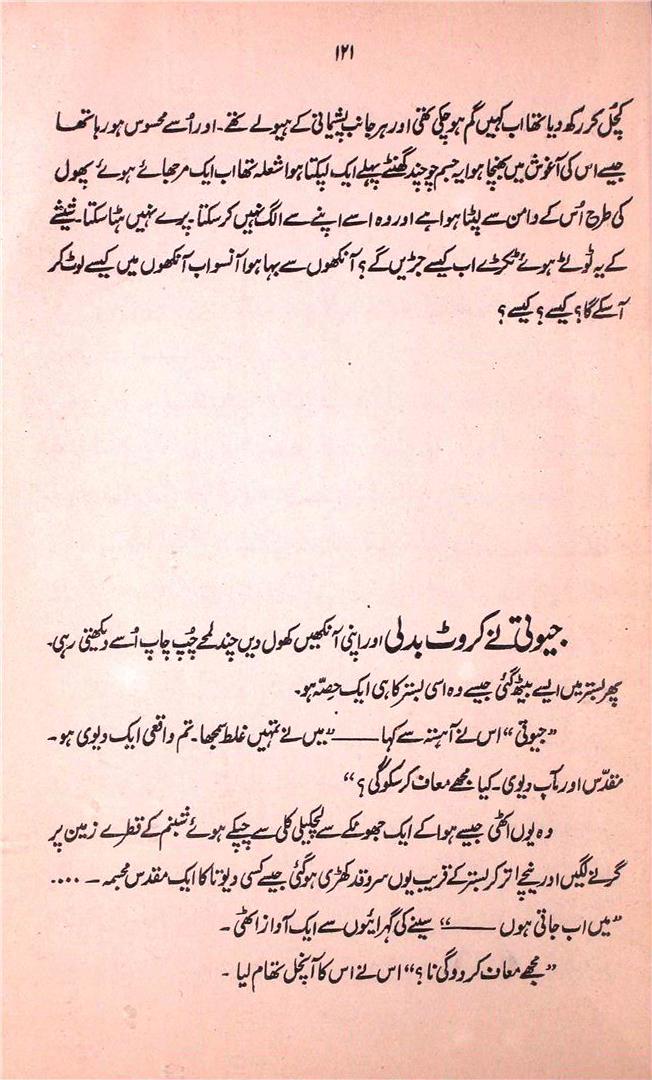 ۱۲۱
کچل کر رکھ دیا تھا اب کہیں گم ہو چکی تھی اور ہر جانب پشیمانی کے ہیولے تھے۔ اور اُسے محسوس ہو رہا تھا
جیسے اس کی آغوش میں بھنچا ہوا یہ جسم جو چند گھنٹے پہلے ایک لپکتا ہوا شعلہ تھا اب ایک مرجھائے ہوئے پھول
کی طرح اُس کے دامن سے لپٹا ہوا ہے اور وہ اسے اپنے سے الگ نہیں کر سکتا۔ پرے نہیں ہٹا سکتا۔ شیشے
کے یہ ٹوٹے ہوئے ٹکڑے اب کیسے جڑیں گے؟ آنکھوں سے بہا ہوا آنسو اب آنکھوں میں کیسے لوٹ کر
آ سکے گا؟ کیسے؟ کیسے؟
جیوتی نے کروٹ بدلی اور اپنی آنکھیں کھول دیں چند لمحے چُپ چاپ اُسے دیکھتی رہی۔
پھر بستر میں ایسے بیٹھ گئی جیسے وہ اسی بستر کا ہی ایک حصّہ ہو۔
”جیوتی“ اس نے آہستہ سے کہا ——— ”میں نے تمہیں غلط سمجھا۔ تم واقعی ایک دیوی ہو۔
مقدّس اور پاپ دیوی۔ کیا مجھے معاف کر سکو گی؟“
وہ یوں اٹھی جیسے ہوا کے ایک جھونکے سے لچکیلی کلی سے چپکے ہوئے شبنم کے قطرے زمین پر
گرنے لگیں اور نیچے اتر کر بستر کے قریب یوں سرو قد کھڑی ہو گئی جیسے کسی دیوتا کا ایک مقدس مجسمہ ۔ ....
”میں اب جاتی ہوں ———“ سینے کی گہرائیوں سے ایک آواز اٹھی۔
”مجھے معاف کر دو گی نا؟“ اس نے اس کا آنچل تھام لیا۔